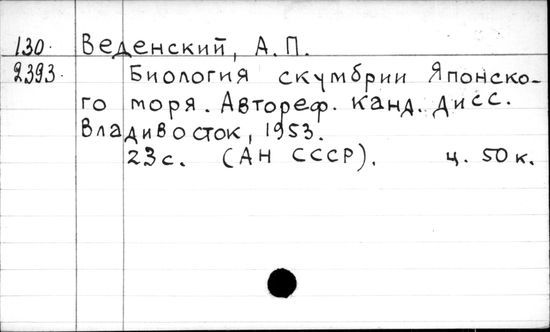 130. Веденский, А.П.
2393. Биология скумбрии Японско-
го моря. Автореф. канд. дисс.
Владивосток, 1953.
23с. (АН СССР). ц. 50 к.